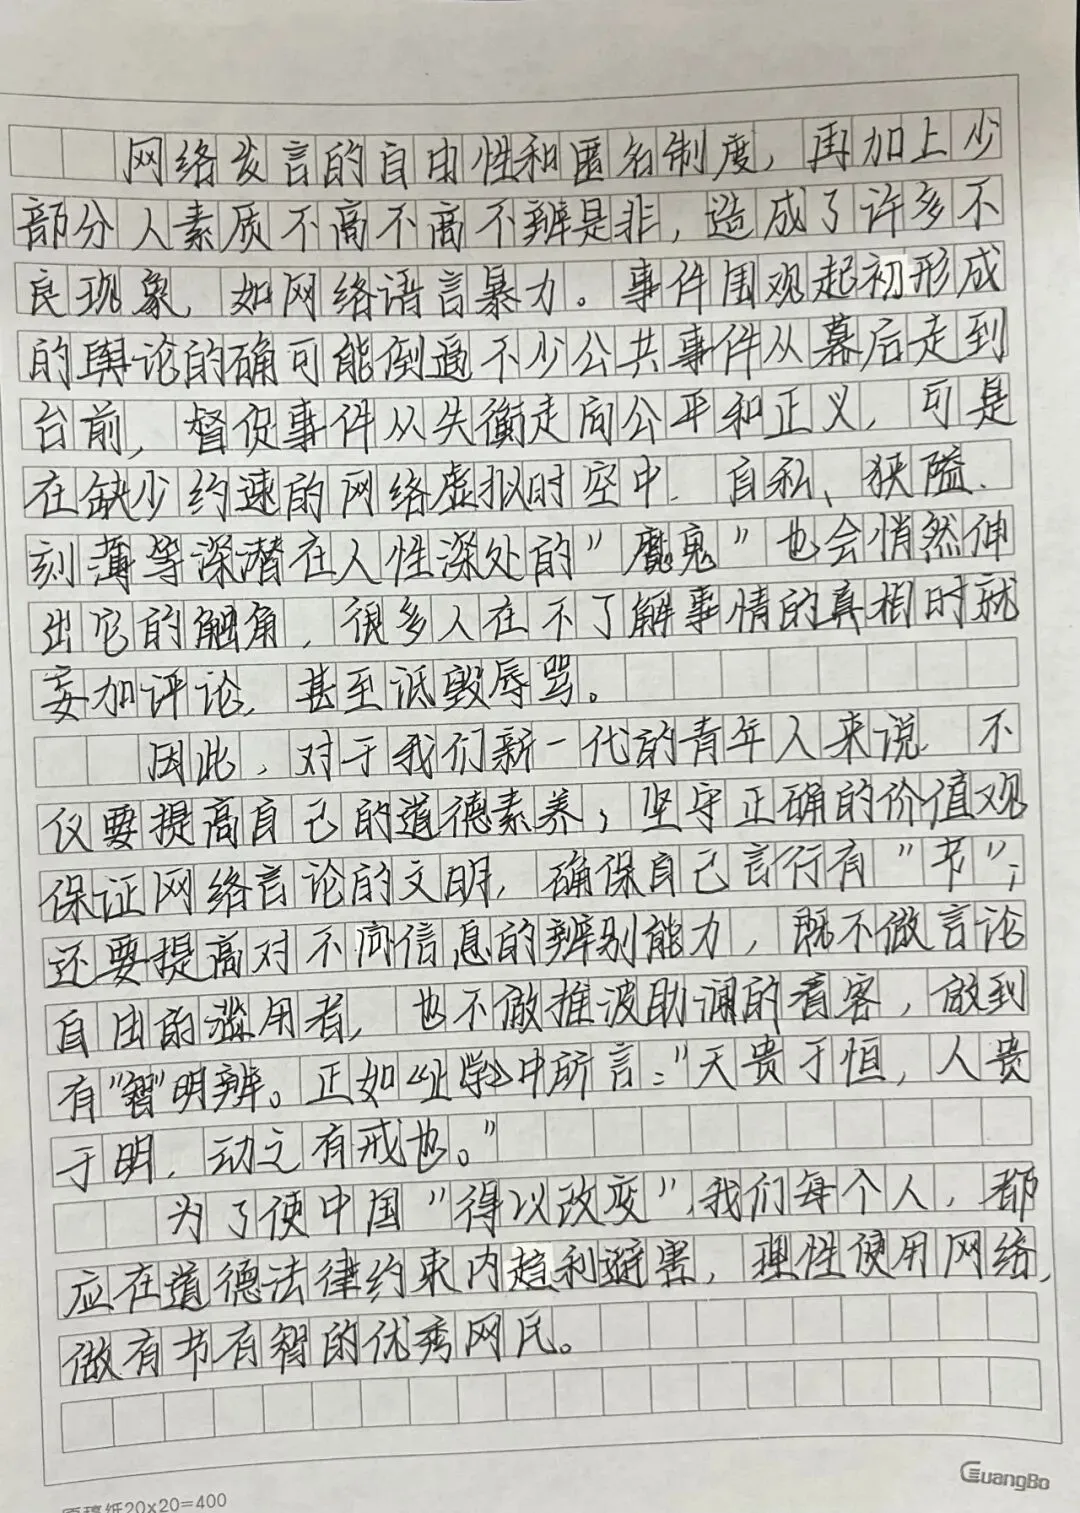 网络发言的自由性和匿名制度，再加上少
部分人素质不高不高不辨是非，造成了许多不
良现象，如网络语言暴力。事件围观起初形成
的舆论的确可能倒逼不少公共事件从幕后走到
台前，督促事件从失衡走向公平和正义，可是
在缺少约速的网络虚拟时空中，自私、狭隘、
刻薄等深潜在人性深处的"魔鬼"也会悄然伸
出它的触角，很多人在不了解事情的真相时就
妄加评论，甚至诋毁辱骂。
因此，对于我们新一代的青年人来说，不
仅要提高自己的道德素养，坚守正确的价值观
保证网络言论的文明，确保自己言行有"节"；
还要提高对不同信息的辨别能力，既不做言论
自由的滥用者，也不做推波助澜的看客，做到
有"智"明辨。正如《止学》中所言："天贵于恒，人贵
于明，动之有戒也。"
为了使中国"得以改变"，我们每个人，都
应在道德法律约束内趋利避害，理性使用网络，
做有节有智的优秀网民。
GuangBo
原稿纸20x20=400